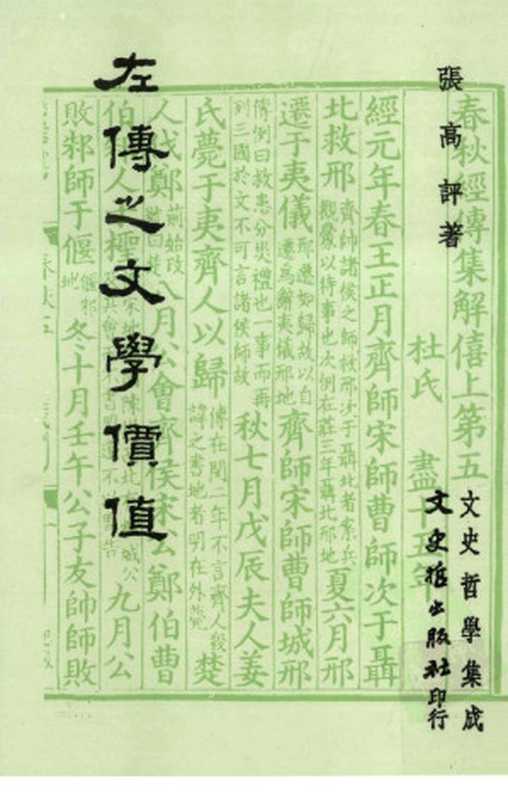 張高評著
左傳之文學價值
文史哲學集成
文史哲出版社印行
春秋經傳集解僖上第五
杜氏 盡十五年
經元年春王正月齊師宋師曹師次于聶
北救邢
齊帥諸侯之師救邢次于聶北者案兵
觀釁以待事也次例在莊三年聶北邢地
夏六月邢
遷于夷儀
邢遷如歸故以自
遷為辭夷儀邢地
齊師宋師曹師城邢
傳例曰救患分災禮也一事而再
列三國於文不可言諸侯師故
秋七月戊辰夫人姜
氏薨于夷齊人以歸
傳在閔二年不言齊人殺
諱之書地者明在外薨
楚
人伐鄭
荊始改
號曰楚
八月公會齊侯宋公鄭伯曹
伯
人于檉
九月公
敗邾師于偃
偃邾
地
冬十月壬午公子友帥師敗